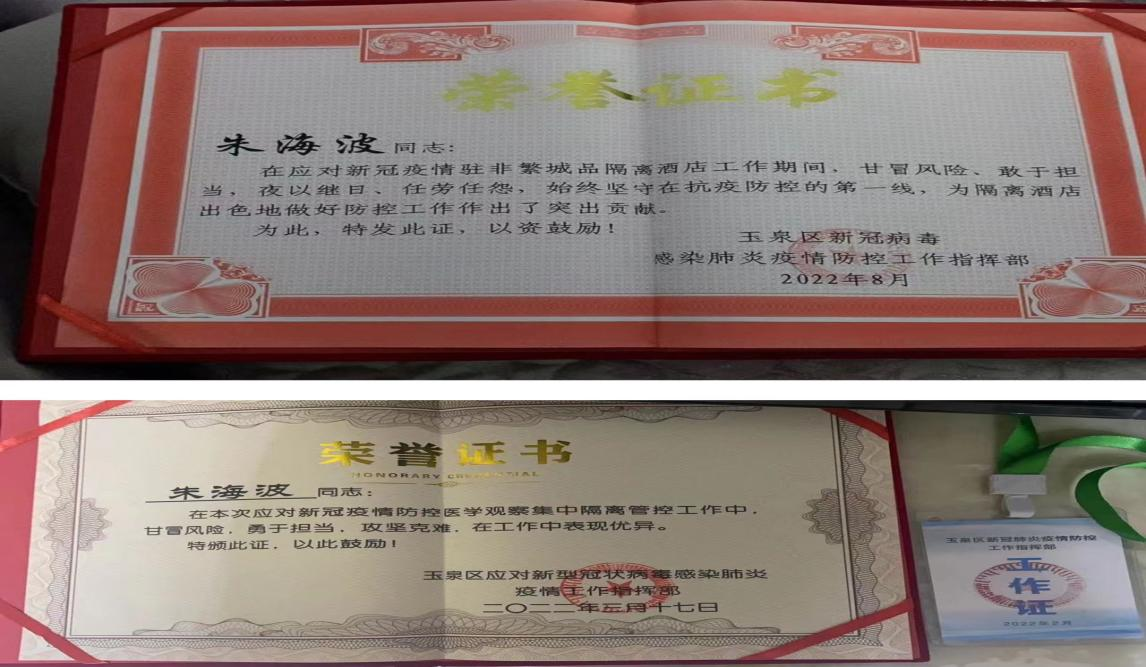 荣誉证书
朱海波同志：
在应对新冠疫情驻非繁城品隔离酒店工作期间，甘冒风险、敢于担
当，夜以继日、任劳任怨，始终坚守在抗疫防控的第一线，为隔离酒店
出色地做好防控工作作出了突出贡献。
为此，特发此证，以资鼓励！
玉泉区新冠病毒
感染肺炎疫情防控工作指挥部
2022年8月
荣誉证书
HONORARY CREDENTIAL
朱海波 同志：
在本次应对新冠疫情防控医学观察集中隔离管控工作中，
甘冒风险，勇于担当，攻坚克难，在工作中表现优异。
特颁此证，以此鼓励！
玉泉区应对新型冠状病毒感染肺炎
疫情工作指挥部
二〇二二年三月十七日
玉泉区新冠肺炎疫情防控
工作指挥部
工
作
证
2022年2月